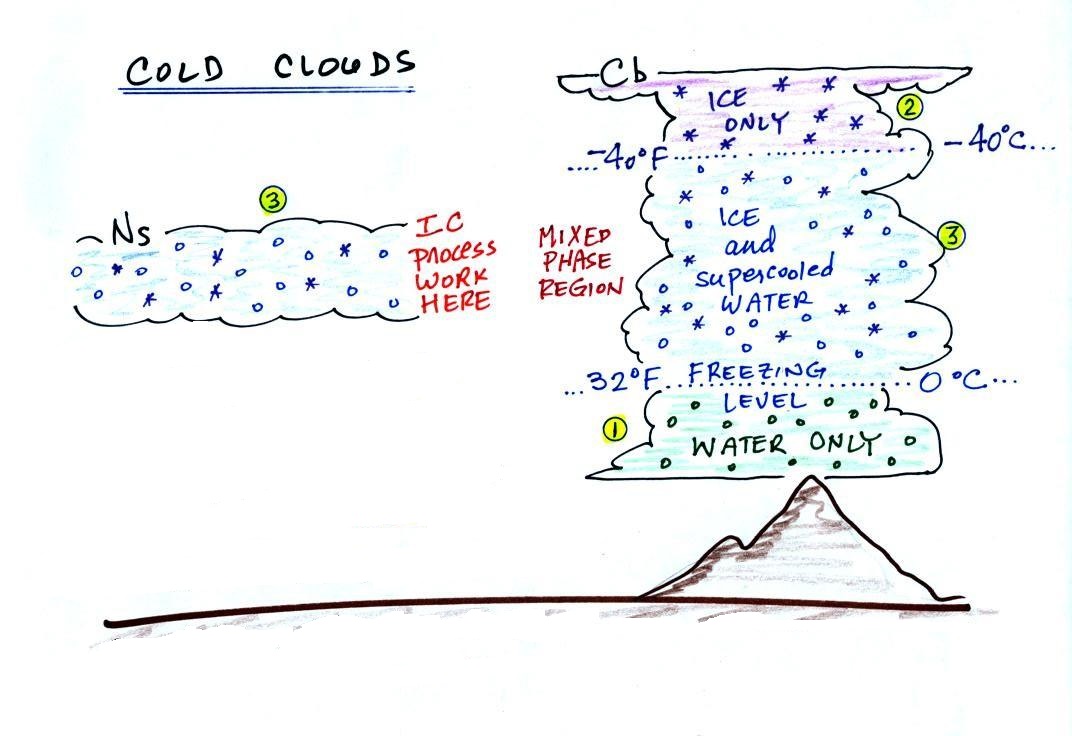 COLD CLOUDS
Cb
ICE
ONLY
2
....-40°F.... -40°C...
3
Ns
IC
PROCESS
WORK
HERE
MIXED
PHASE
REGION
ICE
and
supercooled
WATER
3
...32°F...FREEZING...0°C...
LEVEL
1
WATER ONLY